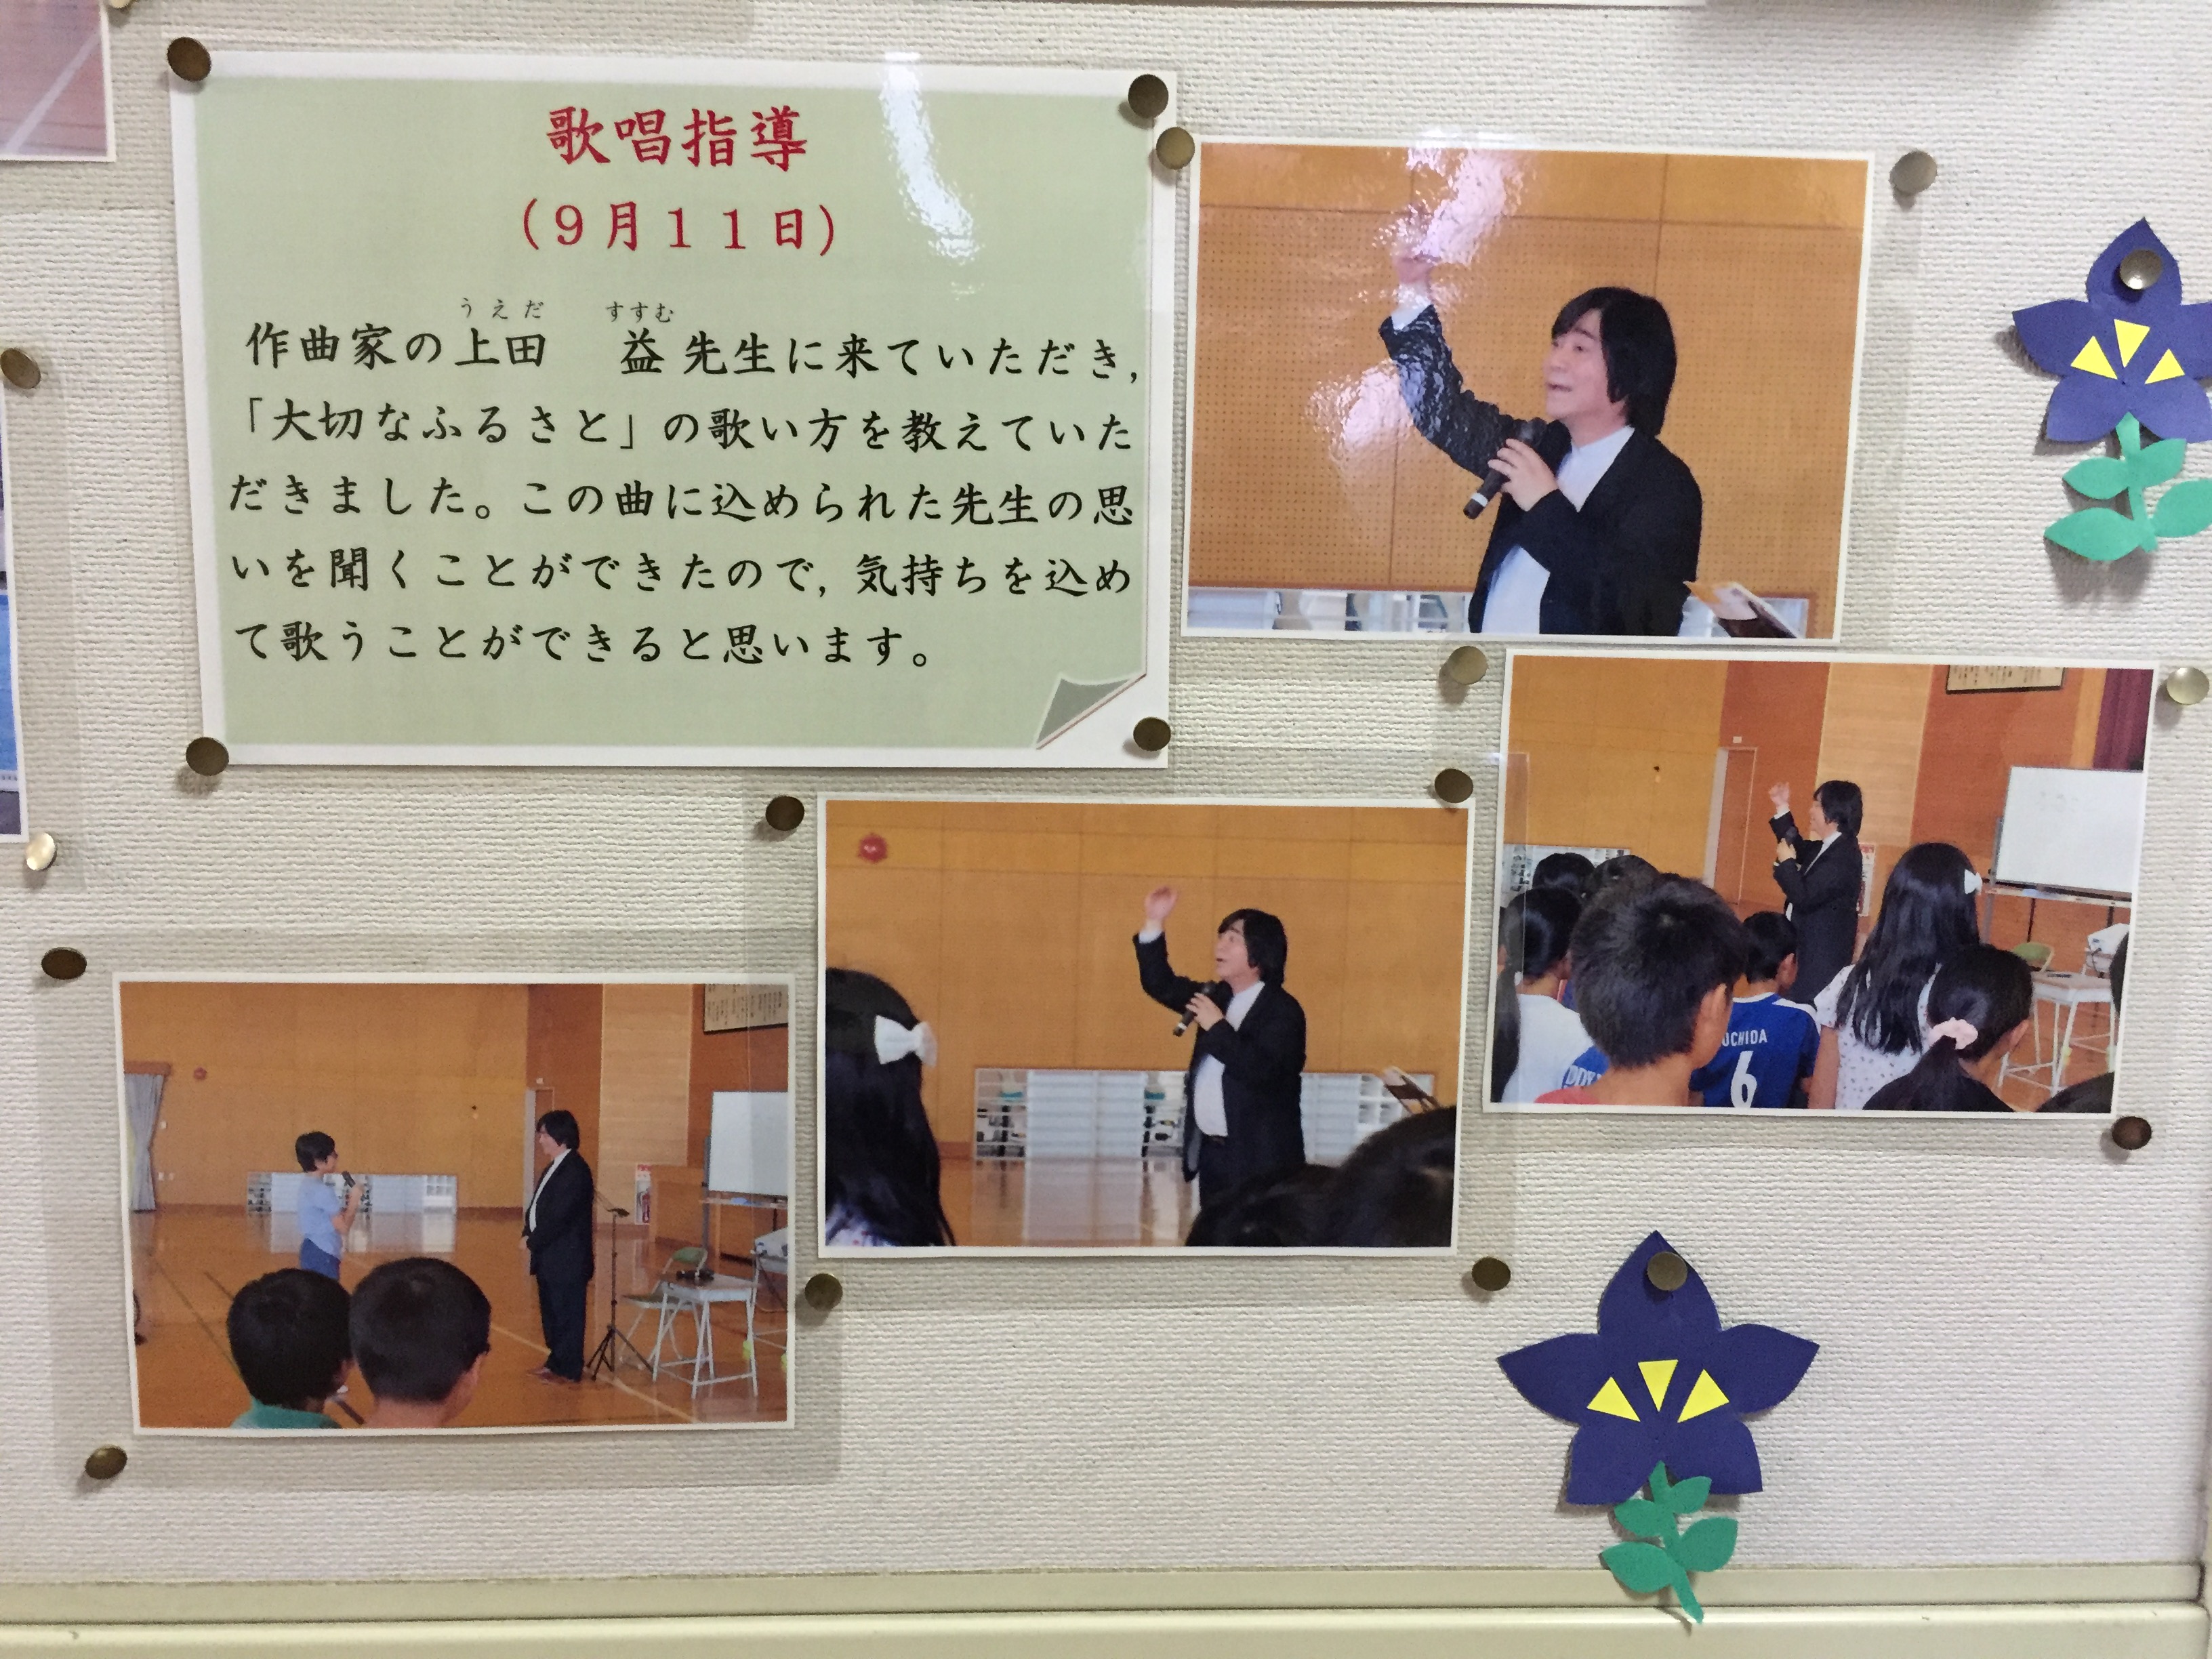 歌唱指導
(9月11日)
うえだ すすむ
作曲家の上田 益先生に来ていただき,
「大切なふるさと」の歌い方を教えていた
だきました。この曲に込められた先生の思
いを聞くことができたので,気持ちを込め
て歌うことができると思います。
UCHIDA
6